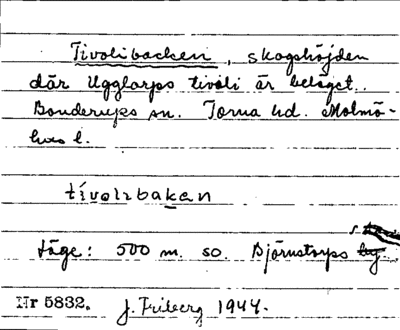 Tivolibacken, skogshöjden
där Ugglarps tivoli är beläget.
Bonderups sn. Torna hd. Malmö-
hus l.
tivolibakan
Läge: 500 m. so. Björnstorps
Nr 5832. J. Friberg 1944.